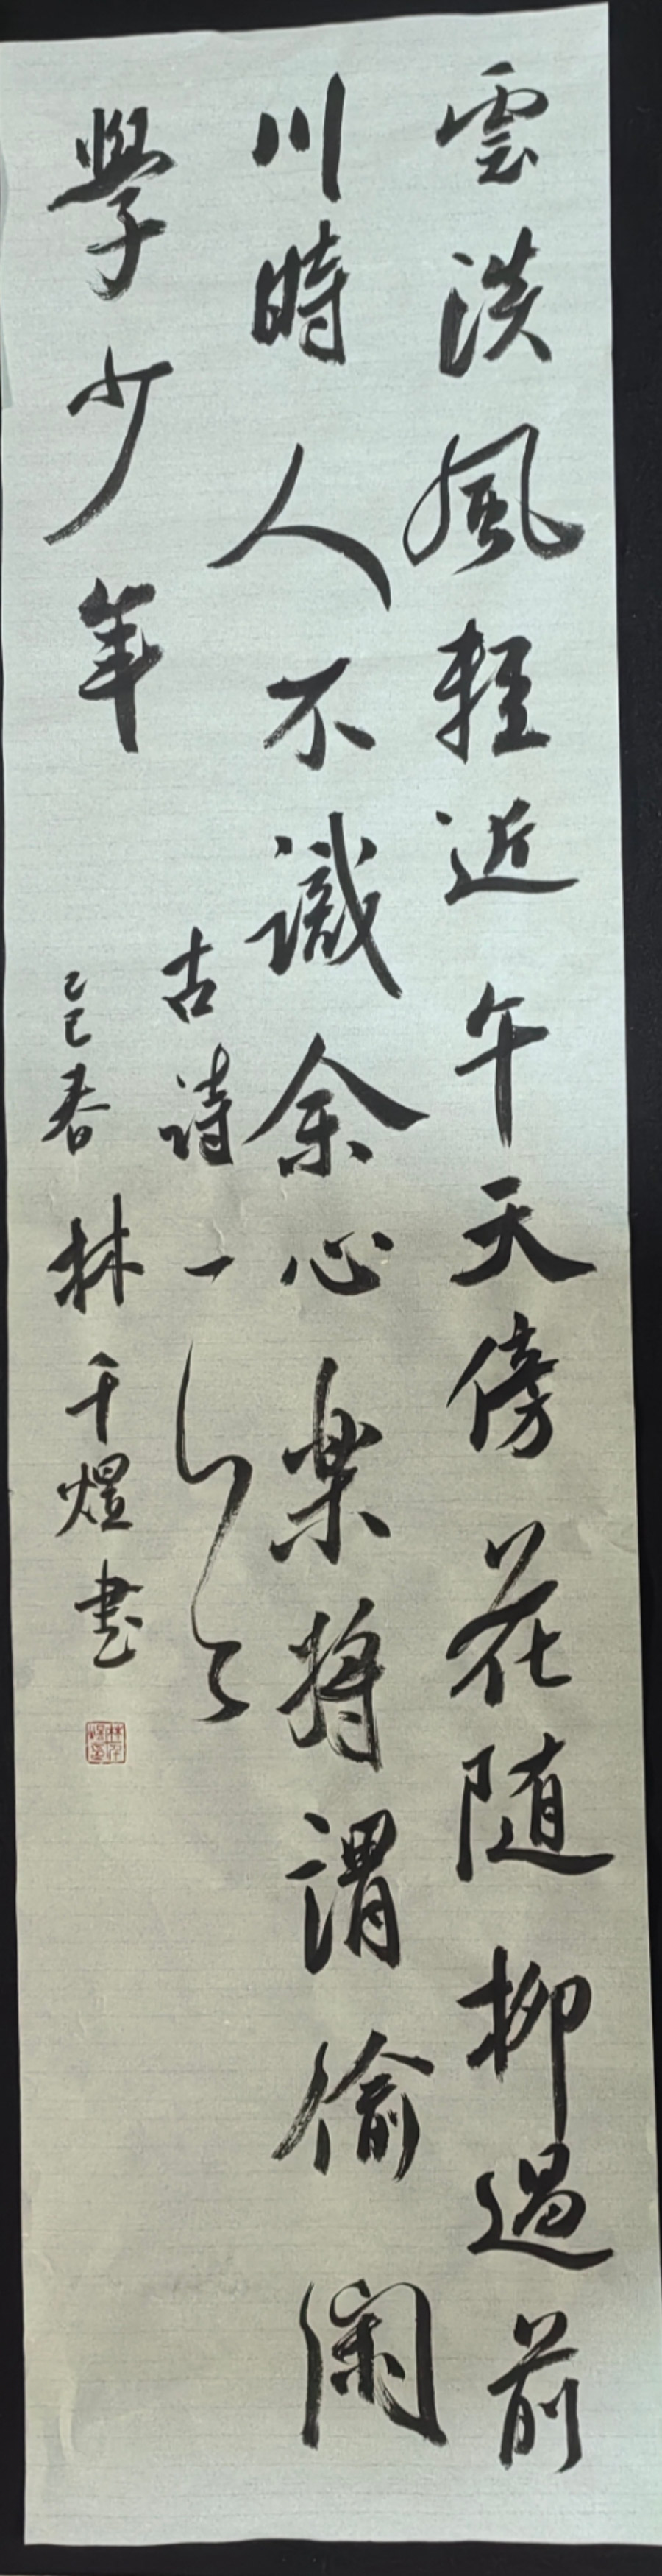 雲淡風輕近午天傍花随柳過前
川時人不識余心楽将謂偷閑
學少年
古詩一首
乙巳春林千煜書